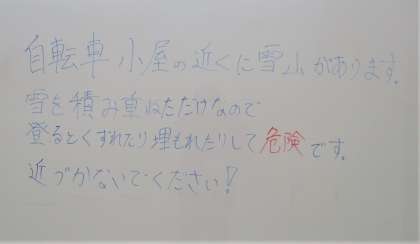 自転車小屋の近くに雪山があります。
雪を積み重ねただけなので
登るとくずれたり埋もれたりして危険です。
近づかないでください!